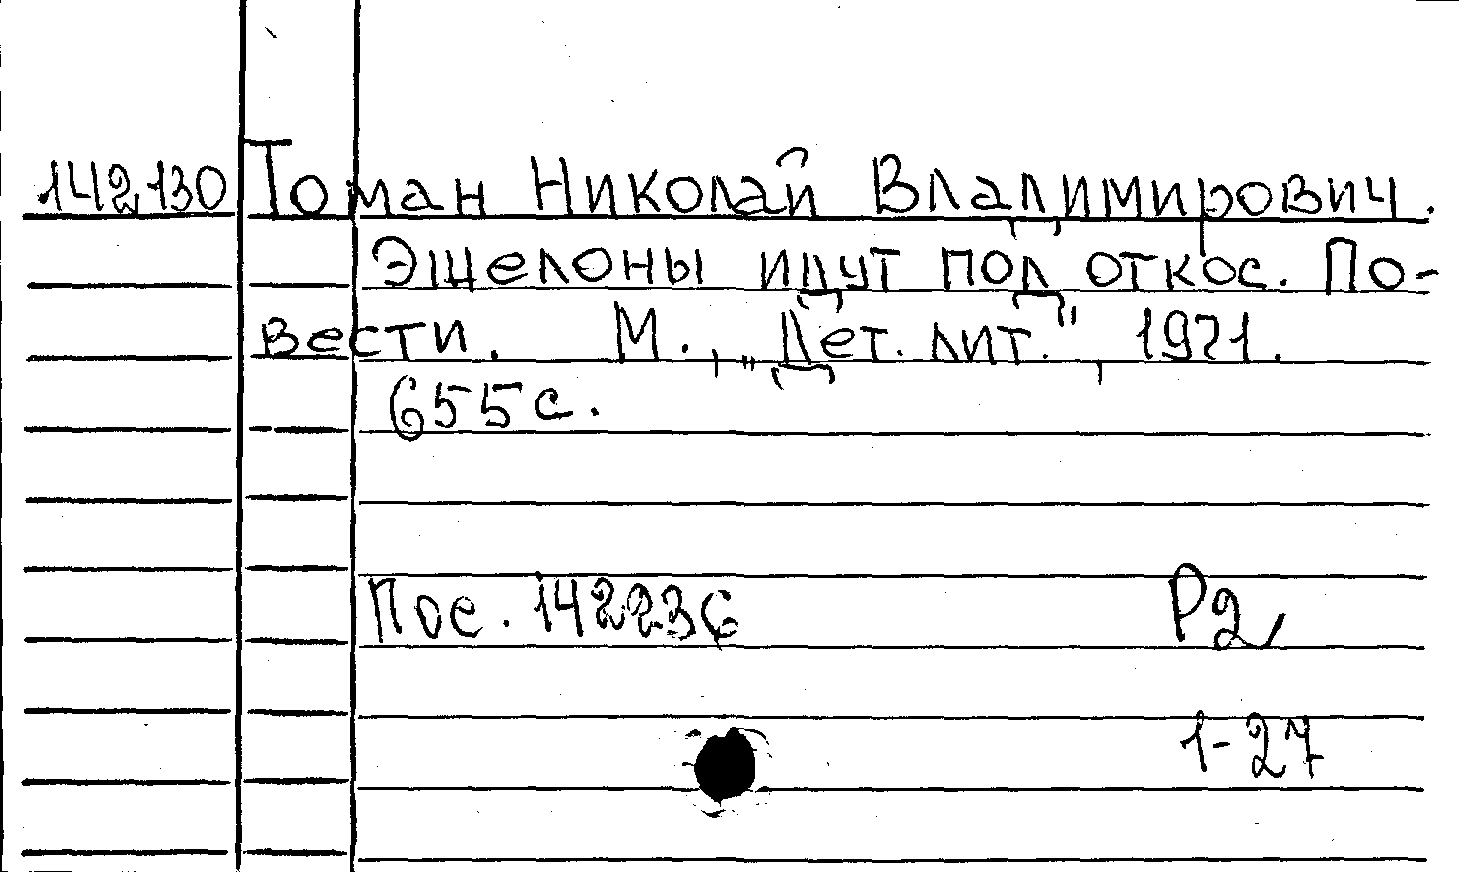 142130 Томан Николай Владимирович.
Эшелоны идут под откос. По-
вести. М., „Дет. лит.", 1971.
655 с.
Пос. 142236 Р2
1-27